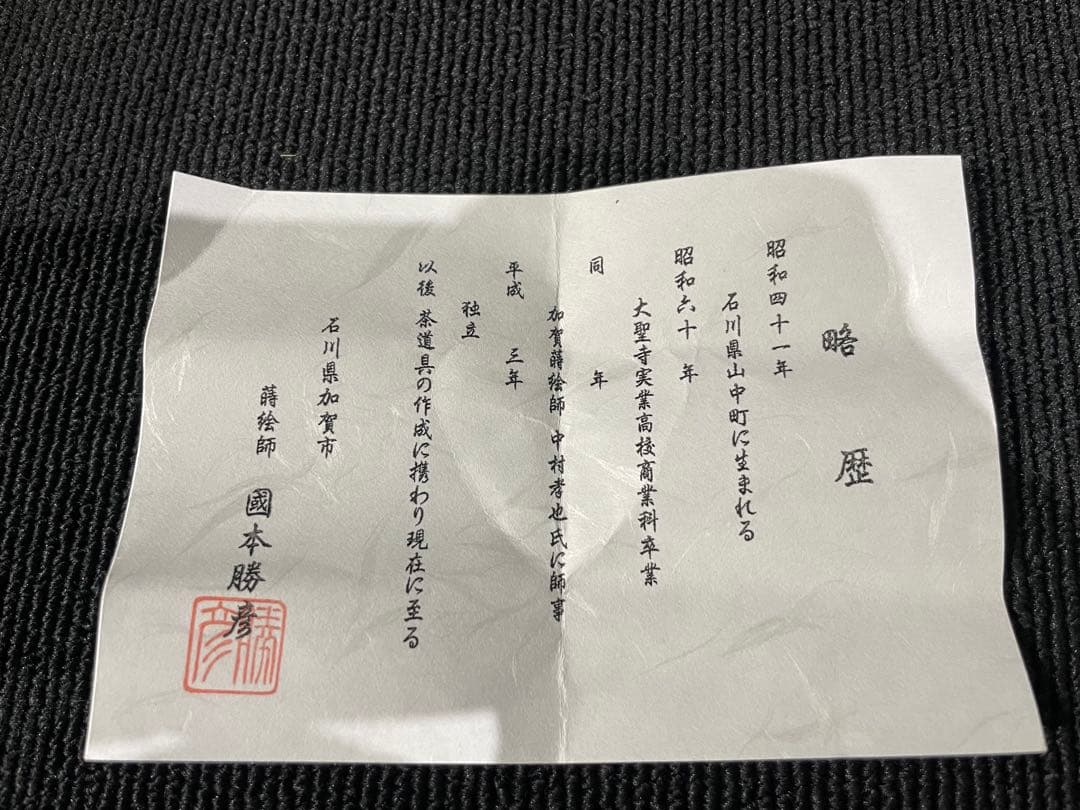 略歴
昭和四十一年
石川県山中町に生まれる
昭和六十年
大聖寺実業高校商業科卒業
同年
加賀蒔絵師 中村孝也氏に師事
平成三年
独立
以後 茶道具の作成に携わり現在に至る
石川県加賀市
蒔絵師 國本勝彦
勝彦